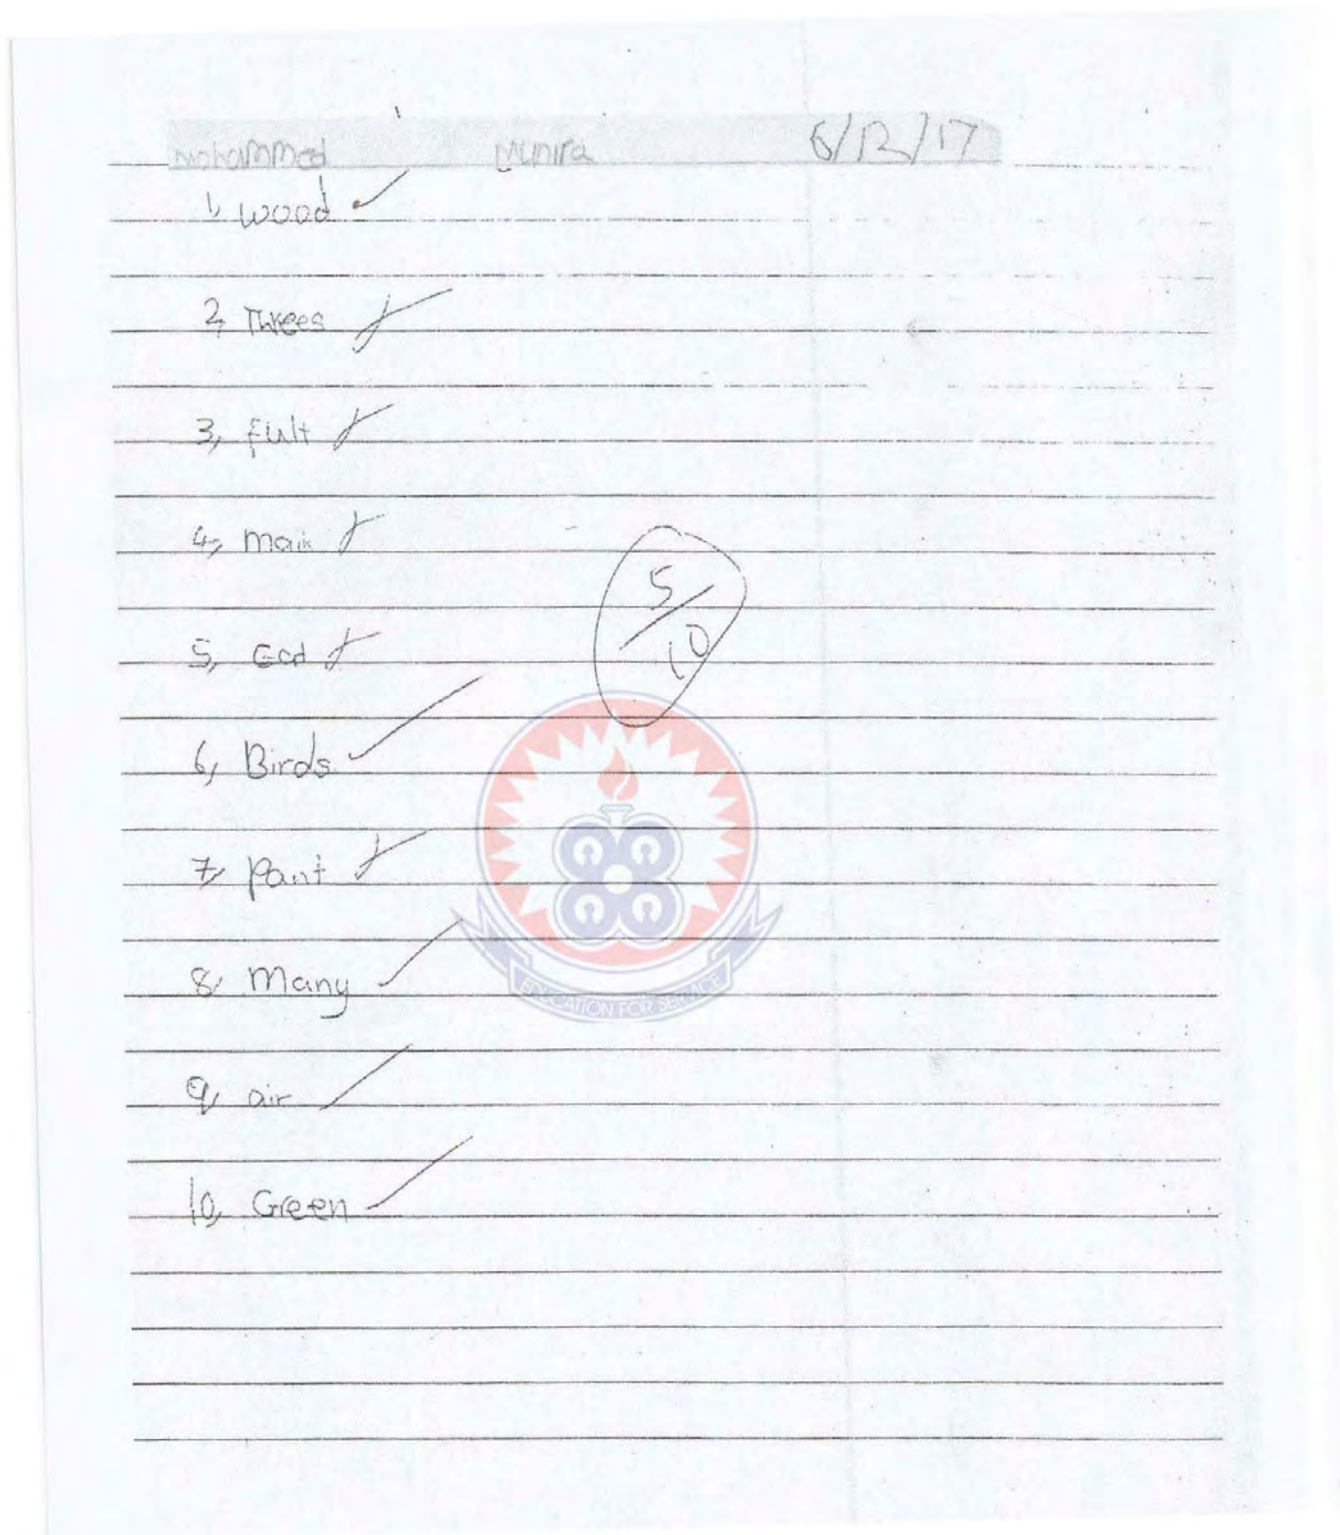 Mohammed Munira 6/12/17
1, wood
2, Threes
3, Fult
4, maik
5, Ecd
6, Birds
7, Pant
8, Many
9, air
10, Green
5/10
EDUCATION FOR SERVICE